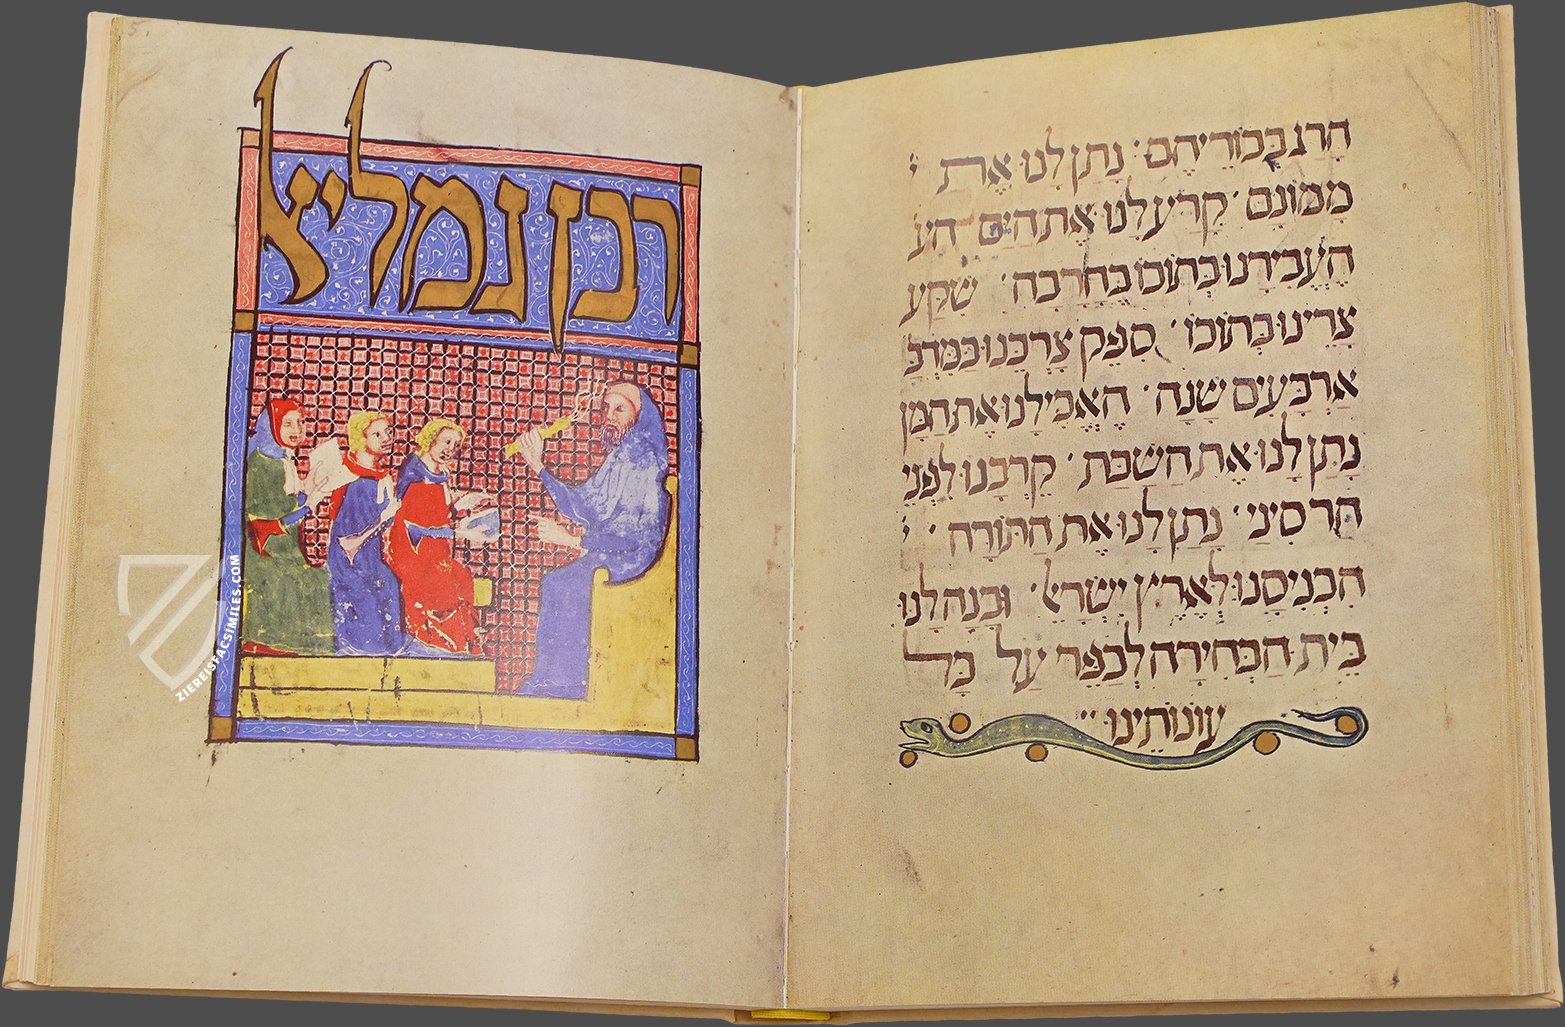 הרג בכוריהם · נתן לנו את י
ממונם · קרע לנו את הים · הע
העבירנו בתוכו בחרבה · שקע
צרינו בתוכו · ספק צרכנו במדב
ארבעים שנה · האכילנו את המן
נתן לנו את השבת · קרבנו לפני
הר סיני · נתן לנו את התורה · י
הכניסנו לארץ ישראל · ובנה לנו
בית הבחירה לכפר על כל
עונותינו
רבן גמליאל
ZIEREISFACSIMILES.COM